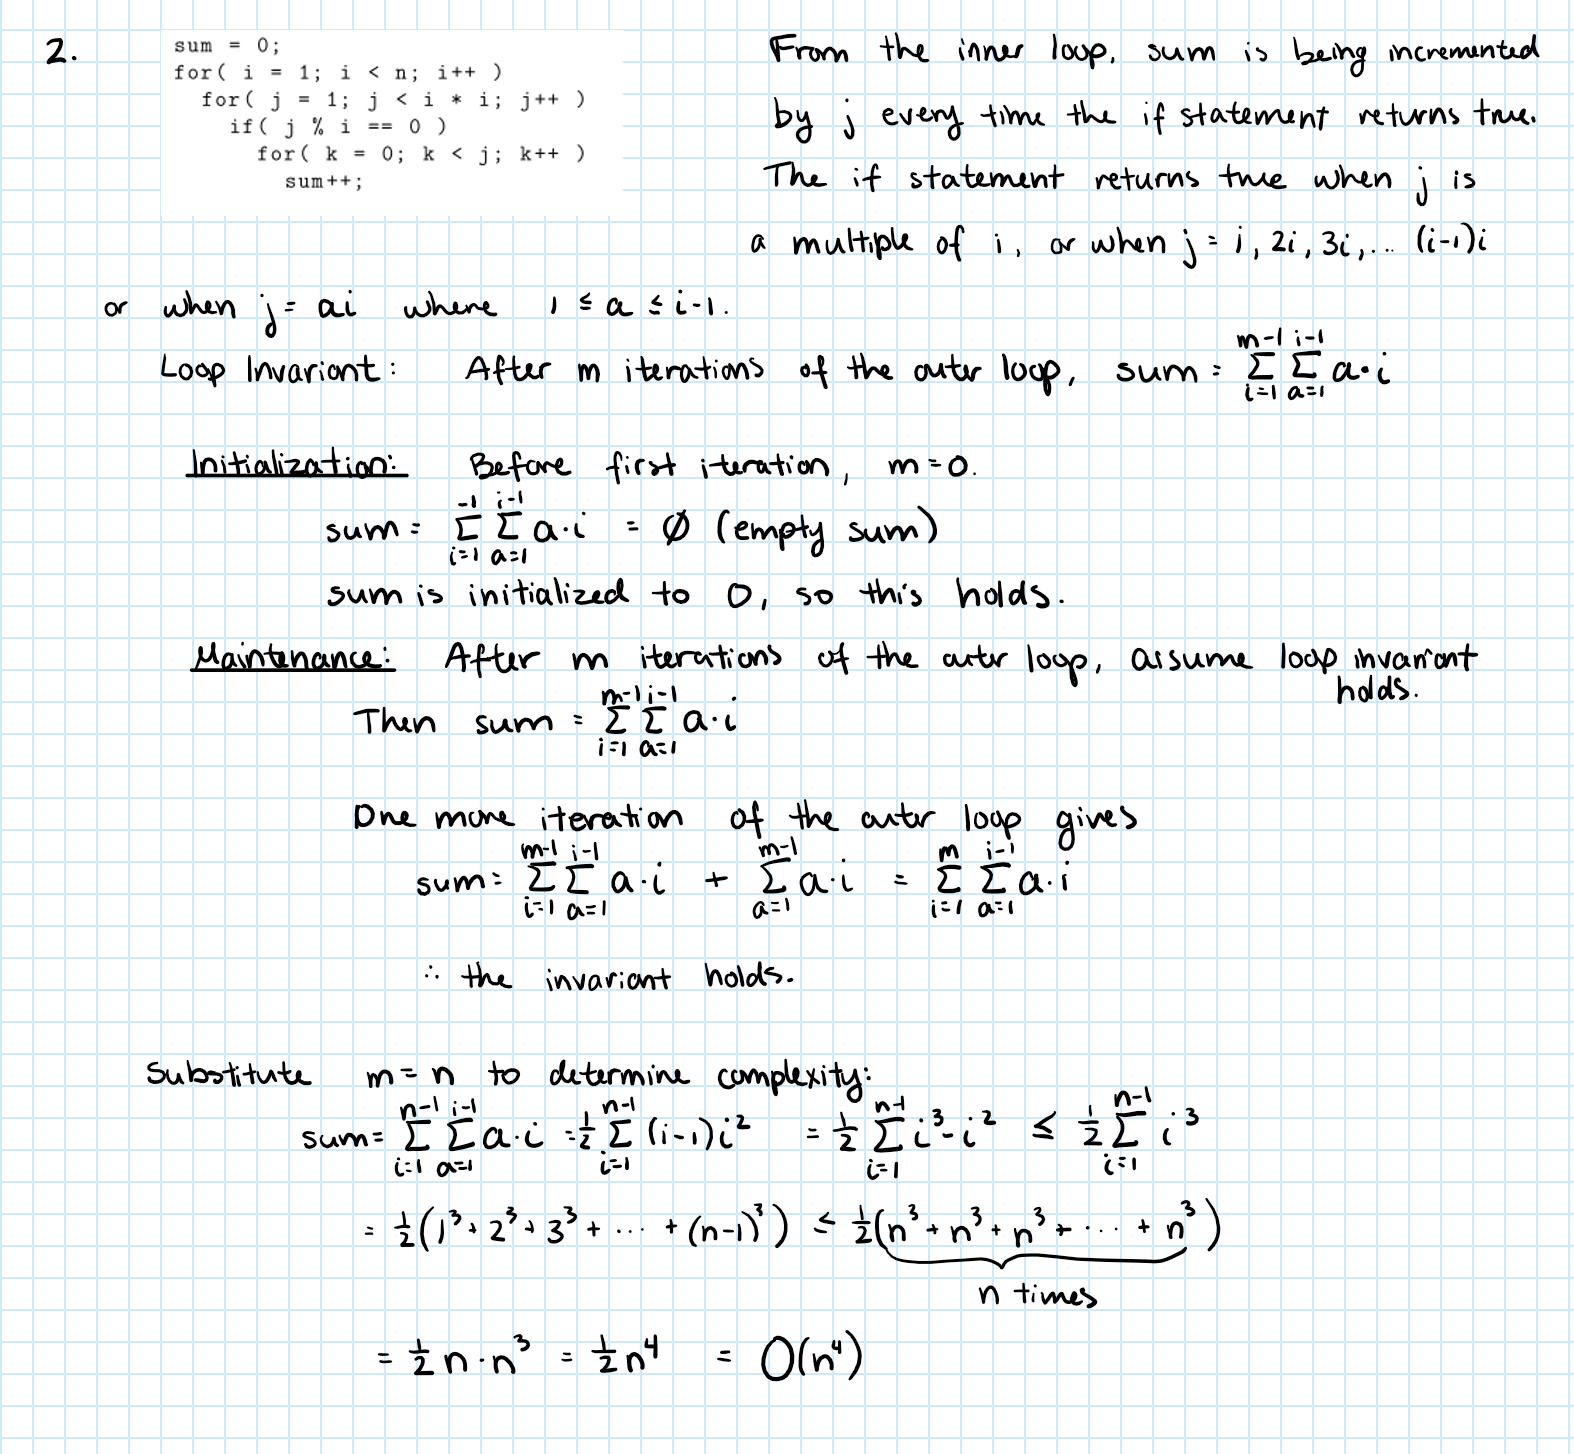 2.
sum = 0;
for( i = 1; i < n; i++ )
for( j = 1; j < i * i; j++ )
if( j % i == 0 )
for( k = 0; k < j; k++ )
sum++;
From the inner loop, sum is being incremented
by j every time the if statement returns true.
The if statement returns true when j is
a multiple of i, or when j = i, 2i, 3i,... (i-1)i
or when j = ai where 1 ≤ a ≤ i-1.
Loop Invariant: After m iterations of the outer loop, sum = \sum_{i=1}^{m-1} \sum_{a=1}^{i-1} a·i
Initialization: Before first iteration, m=0.
sum = \sum_{i=1}^{-1} \sum_{a=1}^{i-1} a·i = ∅ (empty sum)
sum is initialized to 0, so this holds.
Maintenance: After m iterations of the outer loop, assume loop invariant
holds.
Then sum = \sum_{i=1}^{m-1} \sum_{a=1}^{i-1} a·i
One more iteration of the outer loop gives
sum = \sum_{i=1}^{m-1} \sum_{a=1}^{i-1} a·i + \sum_{a=1}^{m-1} a·i = \sum_{i=1}^{m} \sum_{a=1}^{i-1} a·i
∴ the invariant holds.
Substitute m=n to determine complexity:
sum = \sum_{i=1}^{n-1} \sum_{a=1}^{i-1} a·i = ½ \sum_{i=1}^{n-1} (i-1)i² = ½ \sum_{i=1}^{n-1} i³-i² ≤ ½ \sum_{i=1}^{n-1} i³
= ½(1³+2³+3³+ ··· +(n-1)³) ≤ ½(n³+n³+n³+ ··· + n³)
n times
= ½n·n³ = ½n⁴ = O(n⁴)